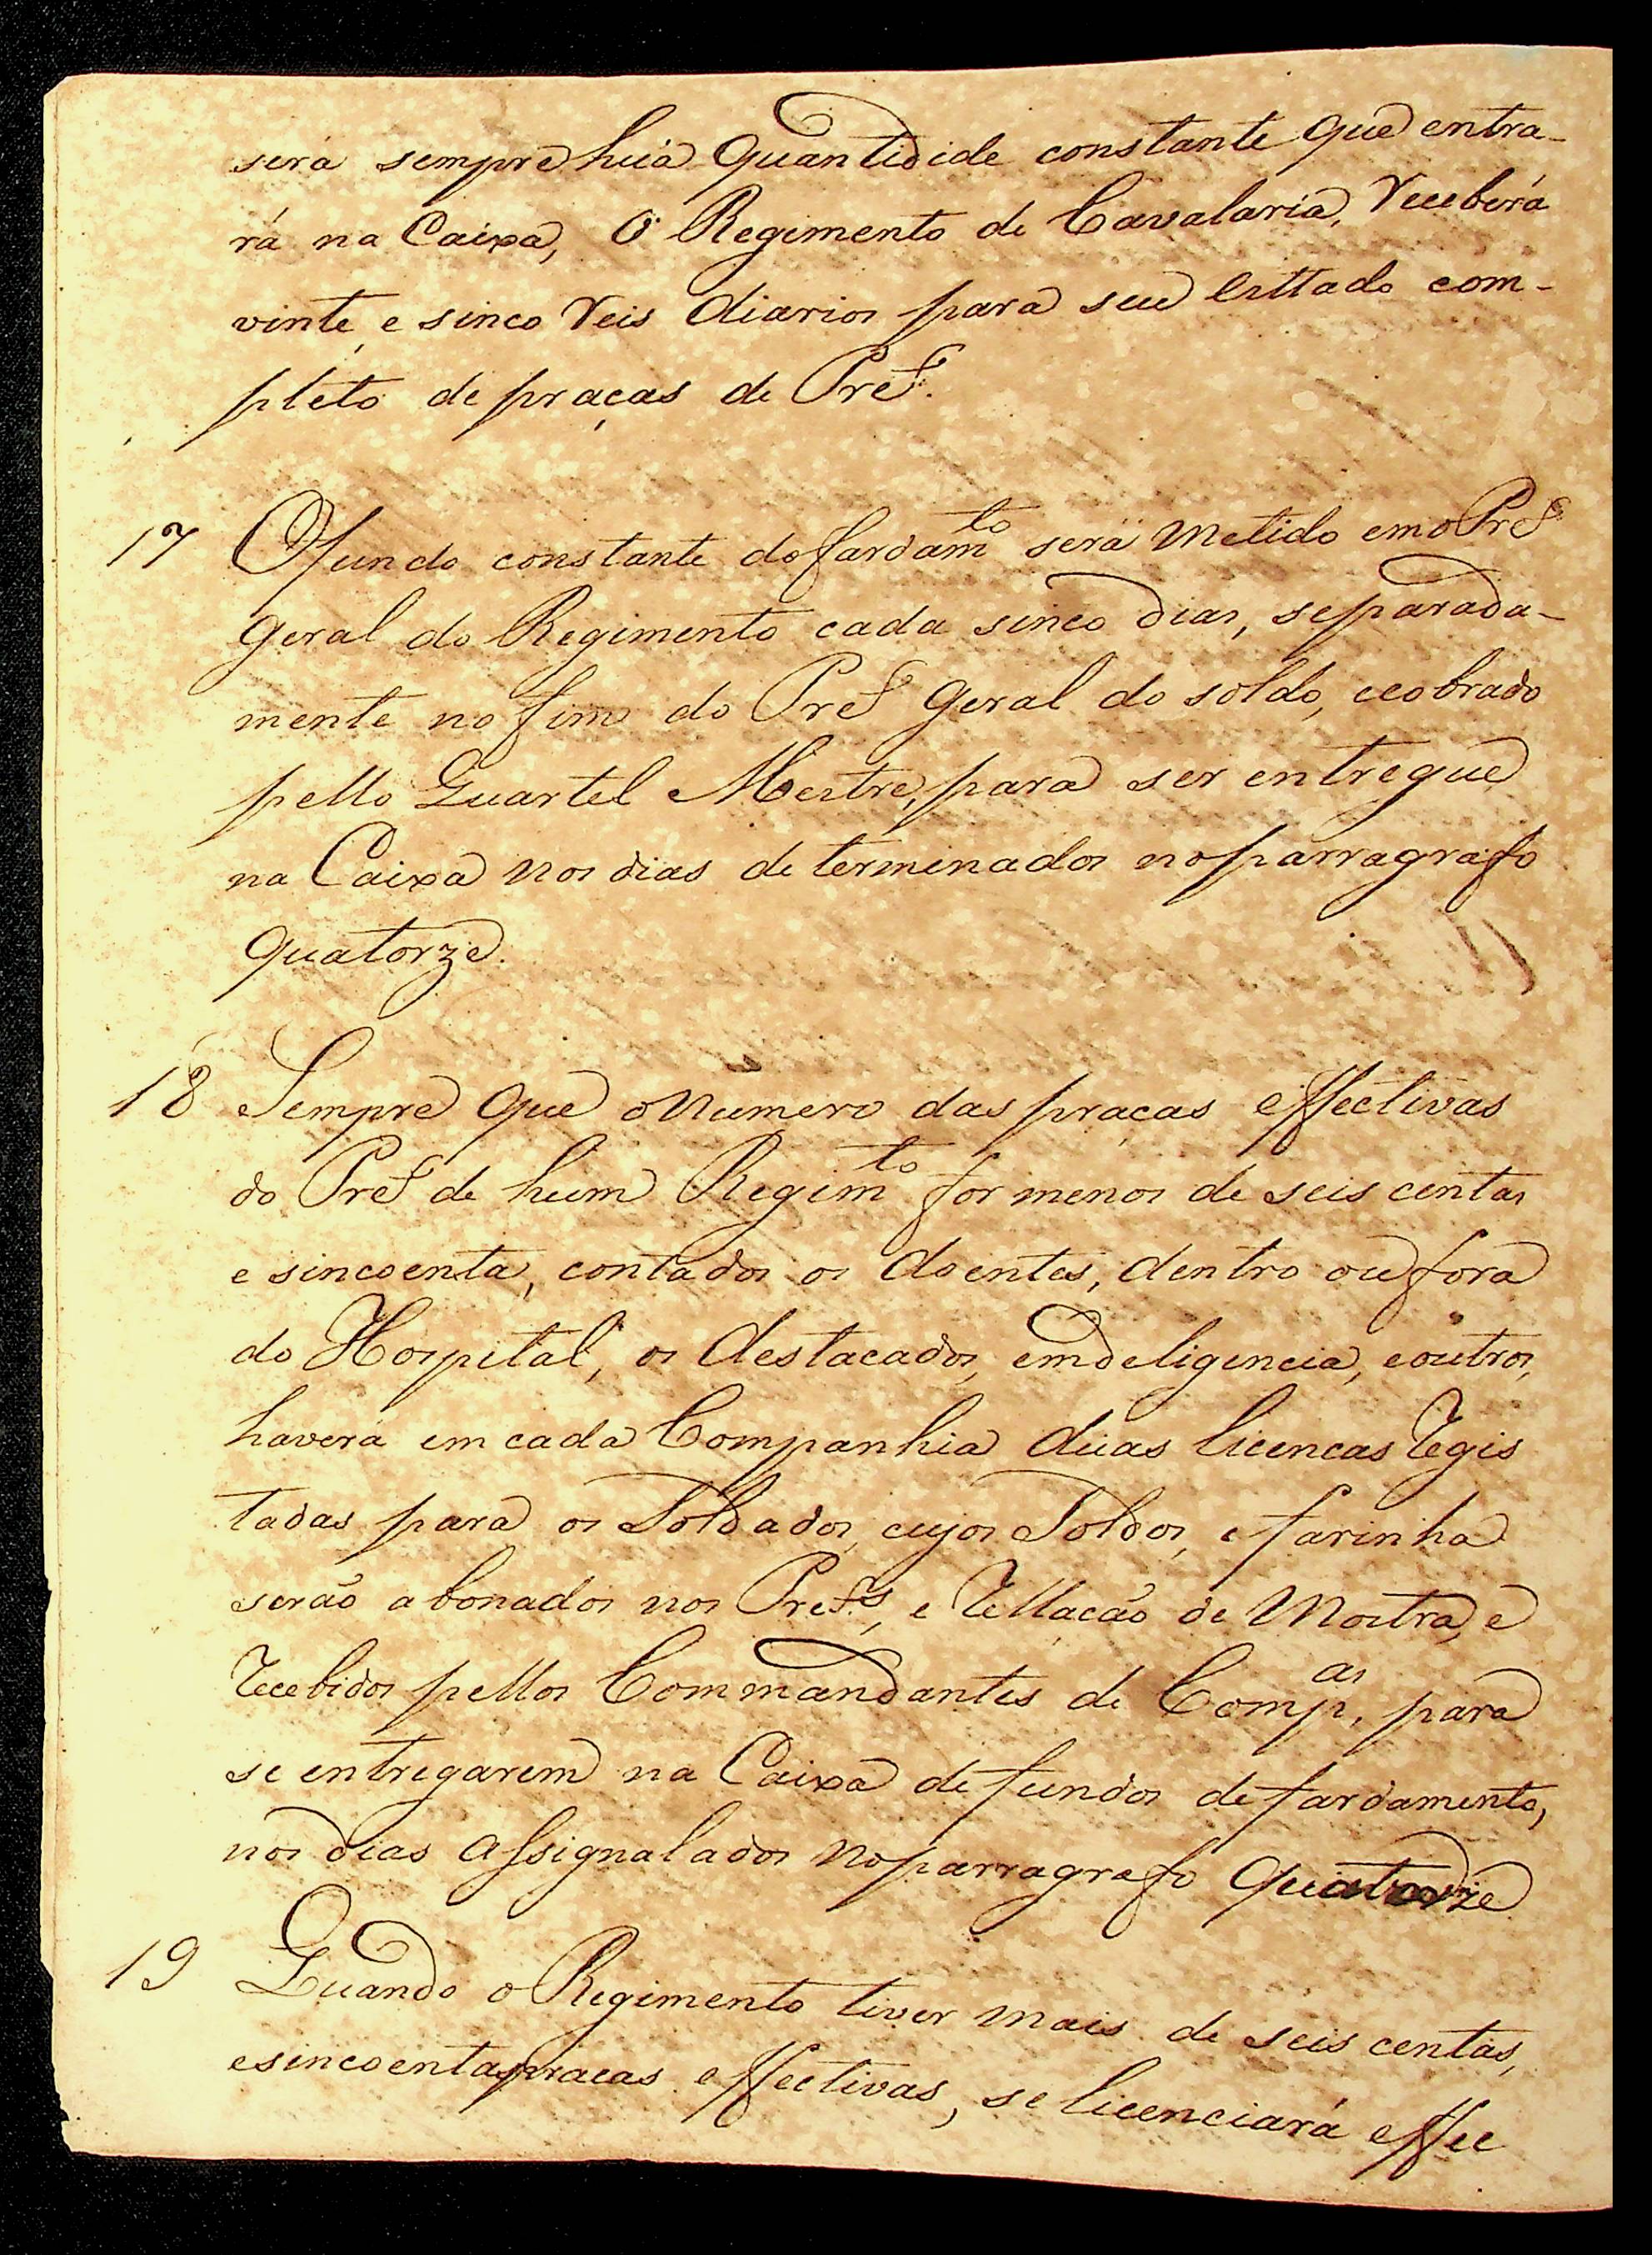 será sempre huá quantidide constante que entra-
rá na Caixa, O Regimento de Cavalaria, receberá
vinte, e sinco reis diarios para seu esttado com-
pleto de praças de Pret.
17 O fundo constante do fardam.to será metido em o Pret
geral do Regimento cada sinco dias, separada-
mente no fim do Pret geral do soldo, e cobrado
pello Quartel Mestre, para ser entregue
na Caixa nos dias determinados no parragrafo
quatorze.
18 Sempre que o numero das praças effectivas
do Pret de hum Regim.to for menos de seis centas
e sincoenta, contados os doentes, dentro ou fora
do Hospital, os destacados, em deligencia, e outros,
haverá em cada Companhia duas licencas regis
tadas para os Soldados, cujos Soldos, e farinha
serão abonados nos Prets, e rellação de Mostra, e
recebidos pellos Commandantes de Comp.as, para
se entregarem na Caixa de fundos de fardamento,
nos dias assignalados no parragrafo quatorze
19 Quando o Regimento tiver mais de seis centas,
e sincoenta praças effectivas, se licenciará effec